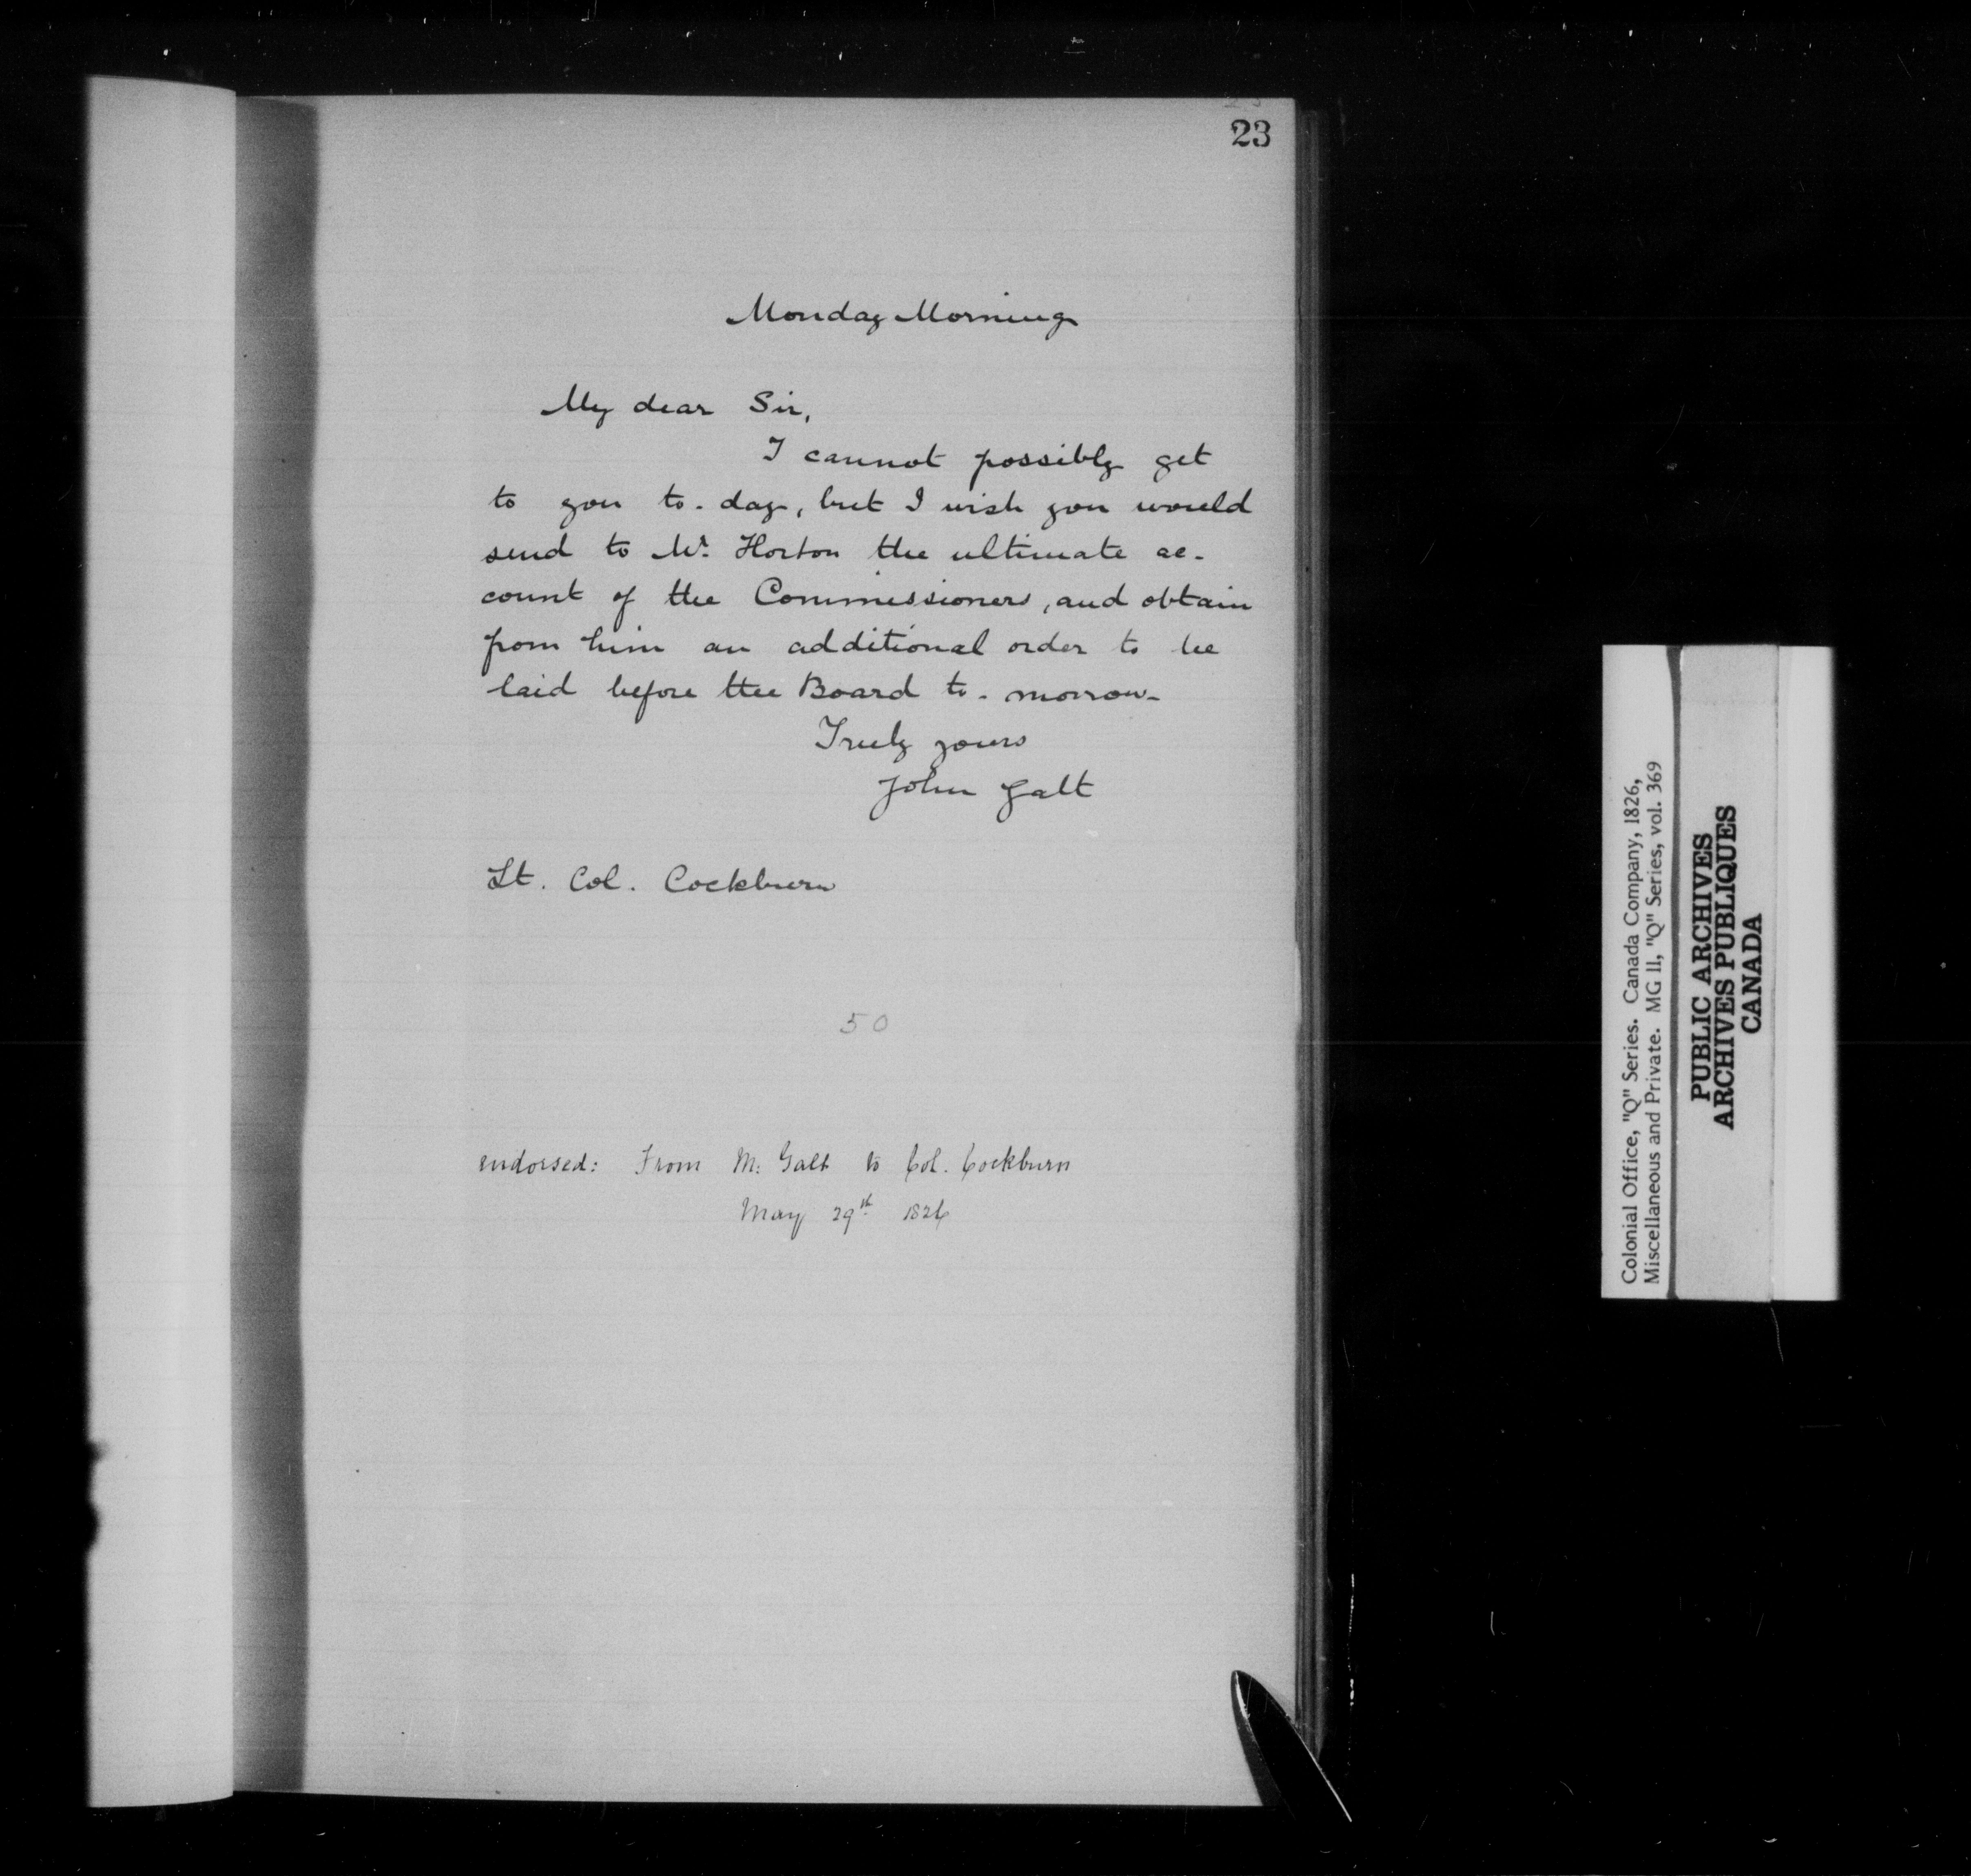 23
Monday Morning
My dear Sir,
I cannot possibly get
to you to-day, but I wish you would
send to Mr. Horton the ultimate ac-
count of the Commissioners, and obtain
from him an additional order to be
laid before the Board to-morrow-
Truly yours
John Galt
Lt. Col. Cockburn
50
endorsed: From Mr. Galt to Col. Cockburn
May 29th 1826
Colonial Office, "Q" Series. Canada Company, 1826,
Miscellaneous and Private. MG 11, "Q" Series, vol. 369
PUBLIC ARCHIVES
ARCHIVES PUBLIQUES
CANADA